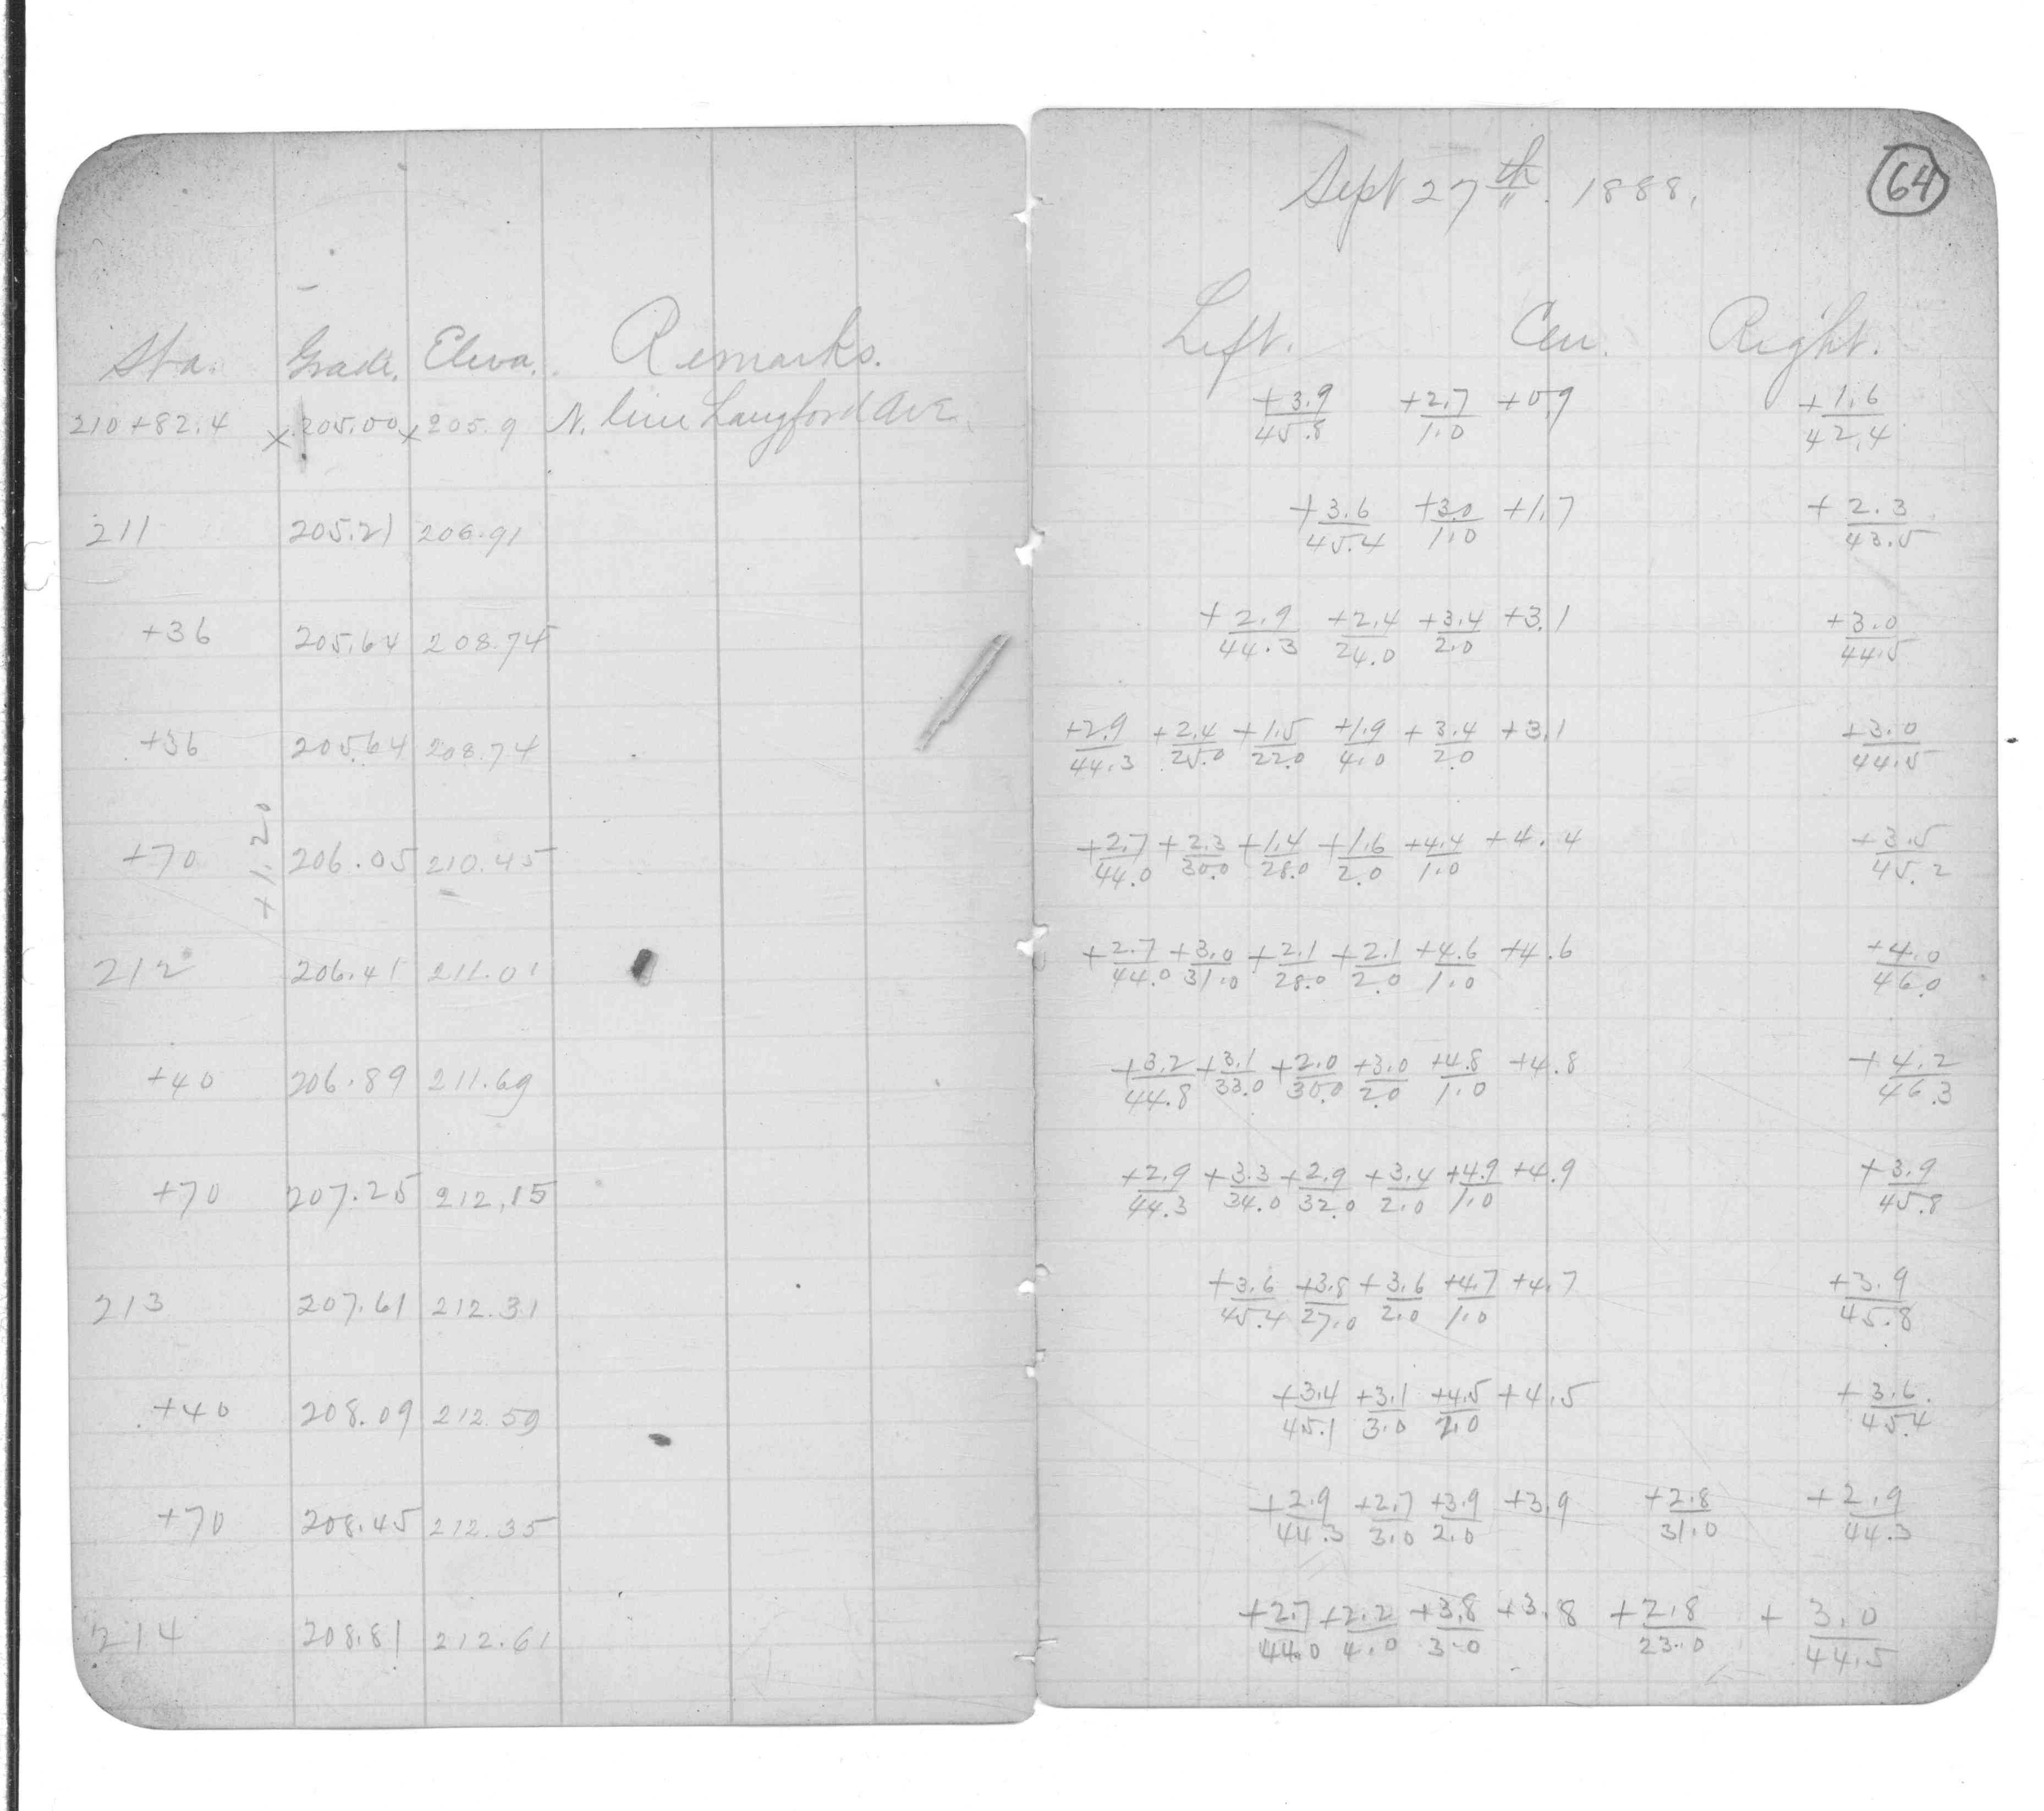 Sta. Grade. Eleva. Remarks.
210+82.4 x 205.00 x 205.9 N. line Langford Ave.
211 205.21 206.91
+36 205.64 208.74
+36 205.64 208.74
+1.20
+70 206.05 210.45
212 206.41 211.01
+40 206.89 211.69
+70 207.25 212.15
213 207.61 212.31
+40 208.09 212.59
+70 208.45 212.35
214 208.81 212.61
64
Sept 27th. 1888.
Left. Cen. Right.
+3.9 +2.7 +0.9 +1.6
45.8 1.0 42.4
+3.6 +3.0 +1.7 +2.3
45.4 1.0 43.5
+2.9 +2.4 +3.4 +3.1 +3.0
44.3 24.0 2.0 44.5
+2.9 +2.4 +1.5 +1.9 +3.4 +3.1 +3.0
44.3 25.0 22.0 4.0 2.0 44.5
+2.7 +2.3 +1.4 +1.6 +4.4 +4.4 +3.5
44.0 30.0 28.0 2.0 1.0 45.2
+2.7 +3.0 +2.1 +2.1 +4.6 +4.6 +4.0
44.0 31.0 28.0 2.0 1.0 46.0
+3.2 +3.1 +2.0 +3.0 +4.8 +4.8 +4.2
44.8 33.0 30.0 2.0 1.0 46.3
+2.9 +3.3 +2.9 +3.4 +4.9 +4.9 +3.9
44.3 34.0 32.0 2.0 1.0 45.8
+3.6 +3.8 +3.6 +4.7 +4.7 +3.9
45.4 27.0 2.0 1.0 45.8
+3.4 +3.1 +4.5 +4.5 +3.6
45.1 3.0 2.0 45.4
+2.9 +2.7 +3.9 +3.9 +2.8 +2.9
44.3 3.0 2.0 31.0 44.3
+2.7 +2.2 +3.8 +3.8 +2.8 + 3.0
44.0 4.0 3.0 23.0 44.5